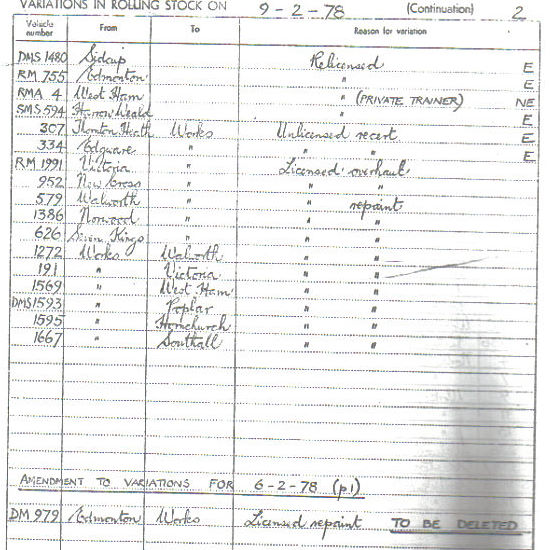 VARIATIONS IN ROLLING STOCK ON 9-2-78 (Continuation) 2
Vehicle number From To Reason for variation
DMS 1480 Sidcup Relicensed E
RM 755 Edmonton " E
RMA 4 West Ham " (PRIVATE TRAINER) NE
SMS 594 Harrow Weald " E
307 Thornton Heath Works Unlicensed recert E
334 Edgware " " " E
RM 1991 Victoria " Licensed overhaul
952 New Cross " " "
579 Walworth " " repaint
1386 Norwood " " "
626 Seven Kings " " "
1272 Works Walworth " "
191 " Victoria " "
1569 " West Ham " "
DMS1593 " Poplar " "
1595 " Hornchurch " "
1667 " Southall " "
AMENDMENT TO VARIATIONS FOR 6-2-78 (p1)
DM 979 Edmonton Works Licensed repaint TO BE DELETED